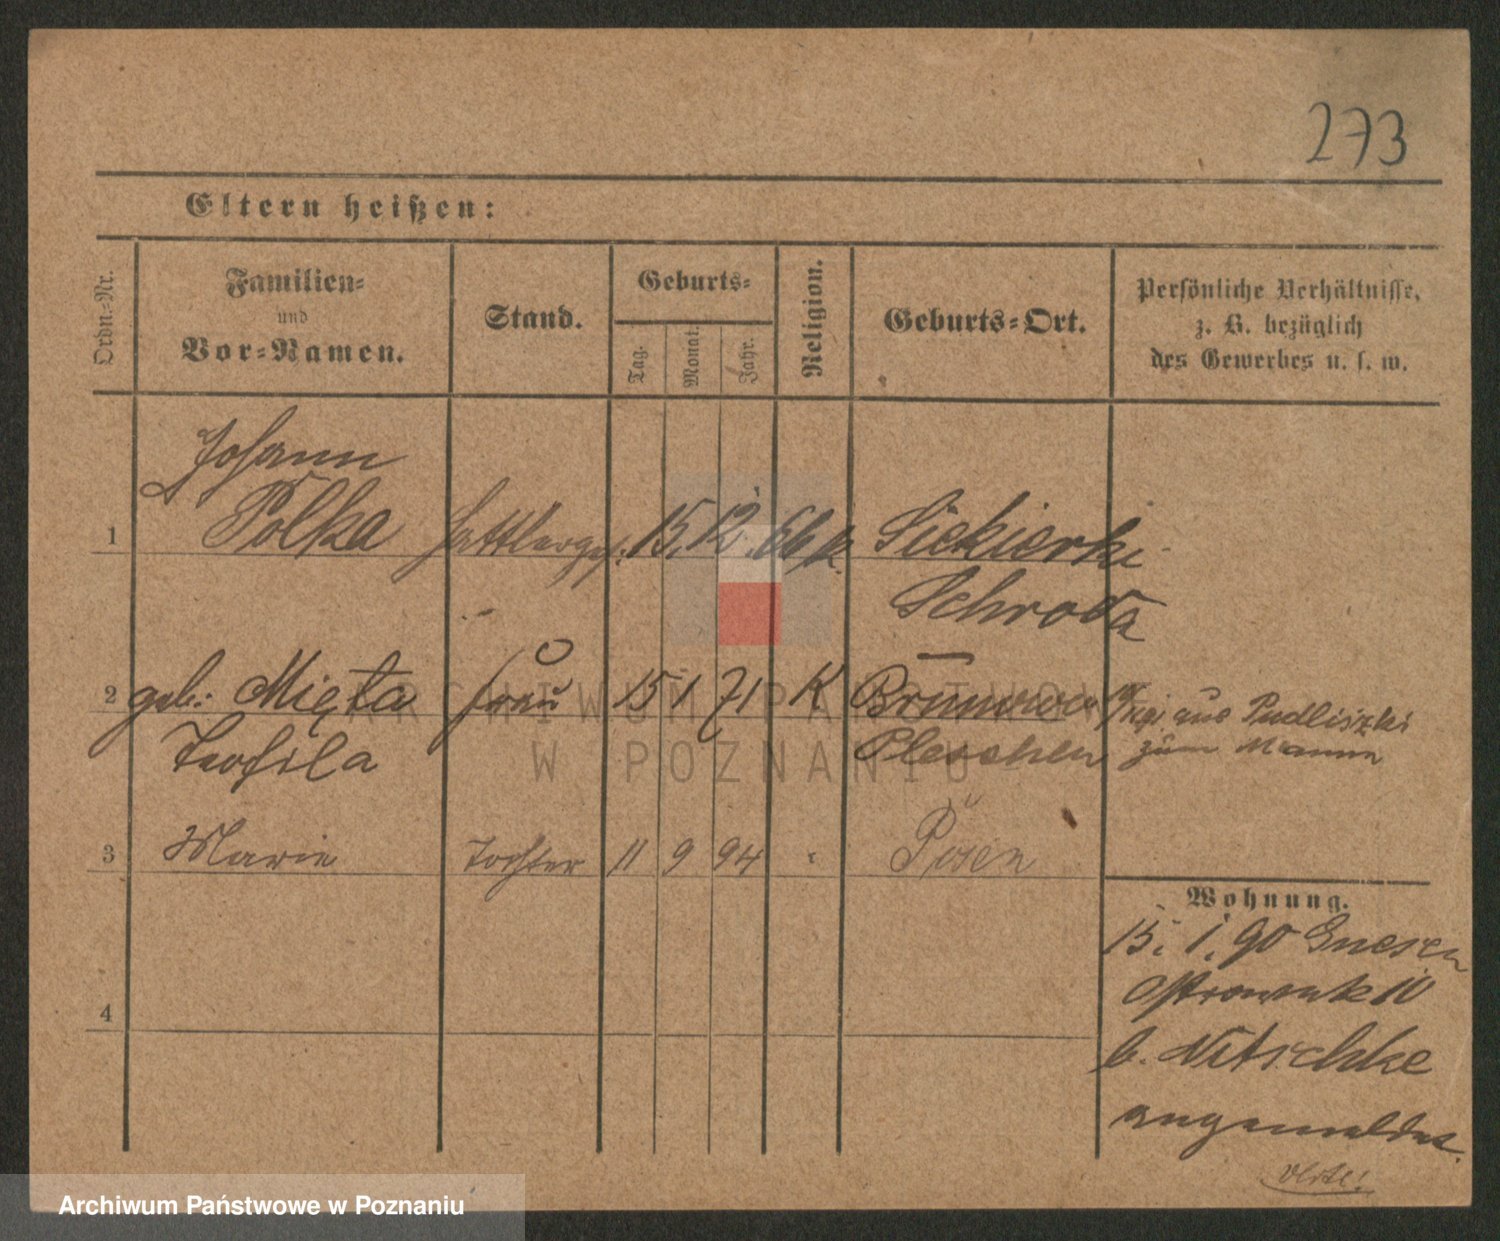 273
Eltern heißen:
Ordn.-Nr.
Familien-
und
Vor-Namen.
Stand.
Geburts-
Tag.
Monat.
Jahr.
Religion.
Geburts-Ort.
Persönliche Verhältnisse,
z. B. bezüglich
des Gewerbes u. s. w.
Johann
1 Polka Sattlerges. 15. 12. 66 k. Siekierki
Schroda
2 geb: Mięta Frau 15 1 71 K Brunowo
Teofila Pleschen
aus Pudliszki
zum Mann
3 Marie Tochter 11 9 94 Posen
Wohnung.
15. 1. 90 Gnesen
4
b. Nitschke
angemeldet.
ARCHIWUM PAŃSTWOWE
W POZNANIU
Archiwum Państwowe w Poznaniu